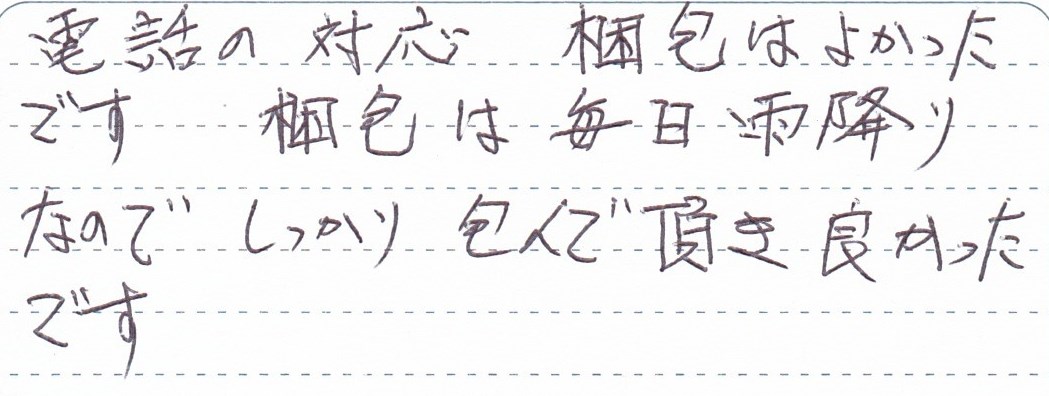 電話の 対応 梱包はよかった
です 梱包は毎日雨降り
なので しっかり 包んで頂き 良かった
です